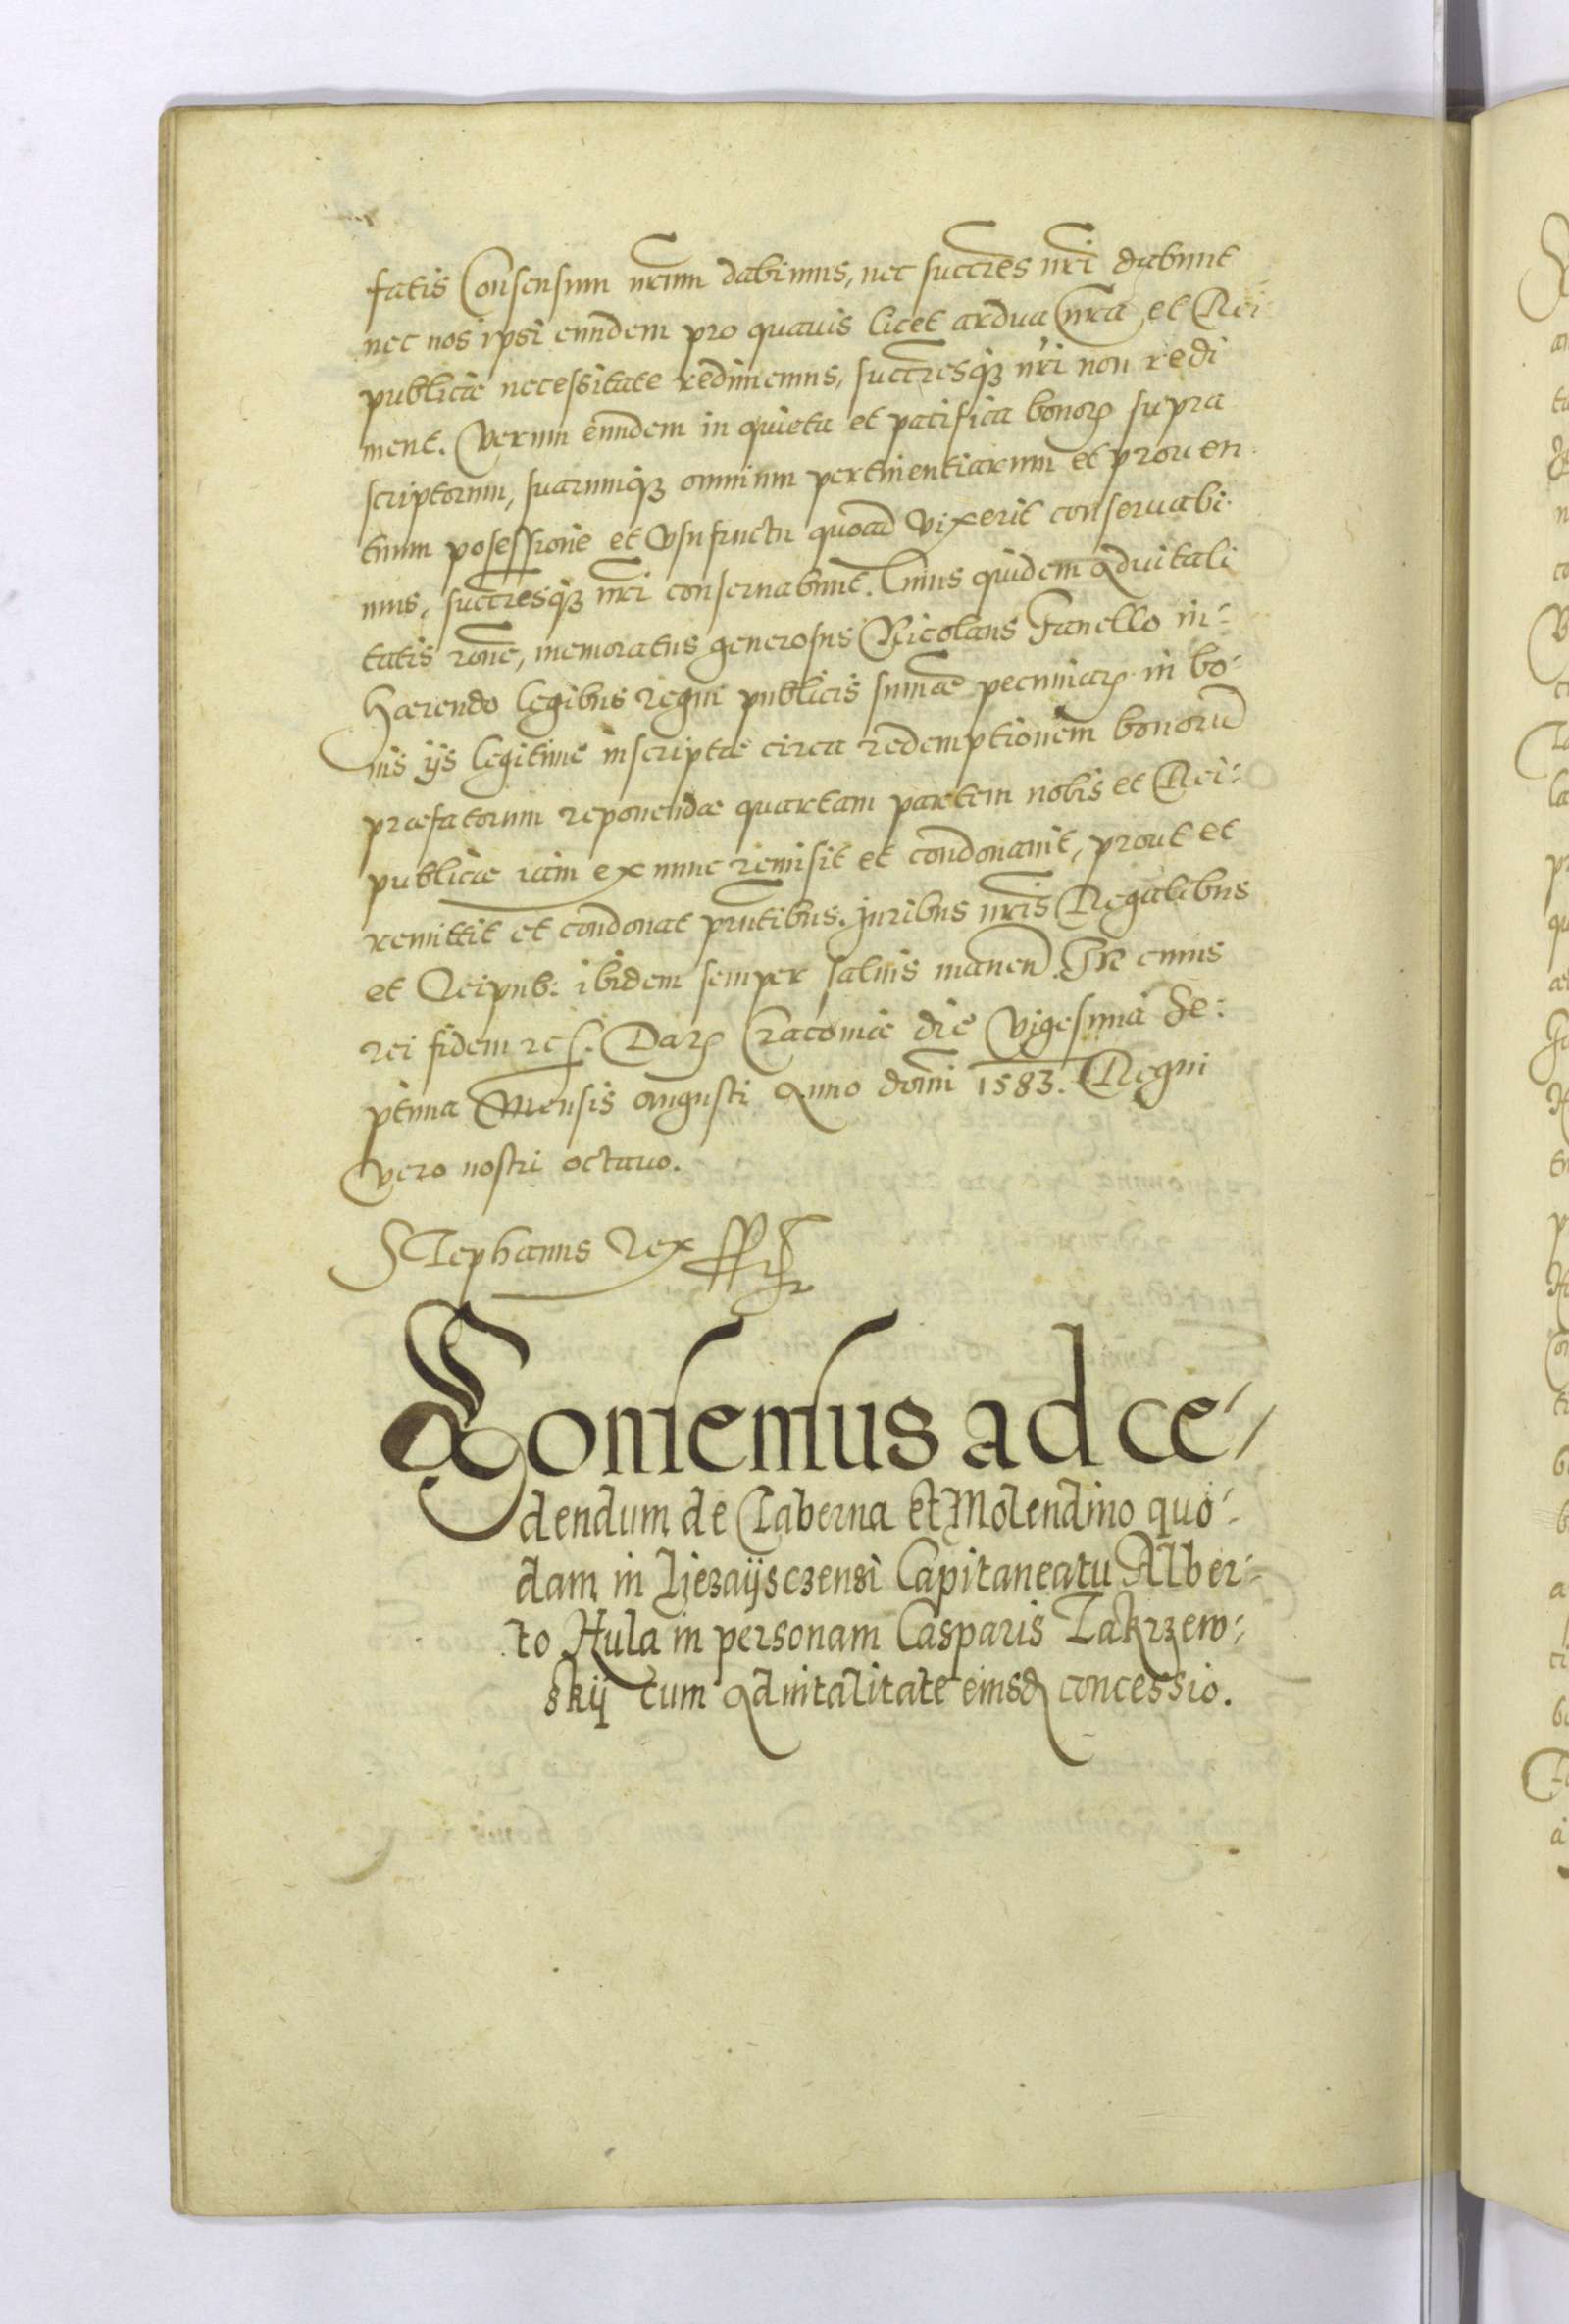 fatis Consensum nrum dabimus, nec succres nri dabunt
nec nos ipsi eundem pro quavis licet ardua nra et Rei
publicæ necessitate redimemus, succresq; nri non redi
ment. Verum eundem in quieta et pacifica bonor supra
scriptorum, suarumq; omnium pertinentiarum et proven
tuum posessione et Vsufructu quoad vixerit conservabi-
mus, succresq; nri conservabunt. Cuius quidem advitali
tatis rone, memoratus generosus Nicolaus Fanello in-
hærendo legibus regni publicis summæ pecuniar in bo-
nis ijs legitime inscriptæ circa redemptionem bonorum
præfatorum reponendæ quartam partem nobis et Rei-
publicæ iam ex nunc remisit et condonavit, prout et
remittit et condonat prntibus. Juribus nris Regalibus
et Reipub: ibidem semper salvis manen. In cuius
rei fidem res. Dat Cracoviæ die Vigesima Se:
ptima Mensis Augusti Anno domi 1583. Regni
vero nostri octavo.
Stephanus Rex
Consensus ad ce-
dendum de Taberna et Molendino quo-
dam in Ljezaijsczensi Capitaneatu Alber-
to Hula in personam Casparis Zakrzew-
skij cum advitalitate eiusd concessio.